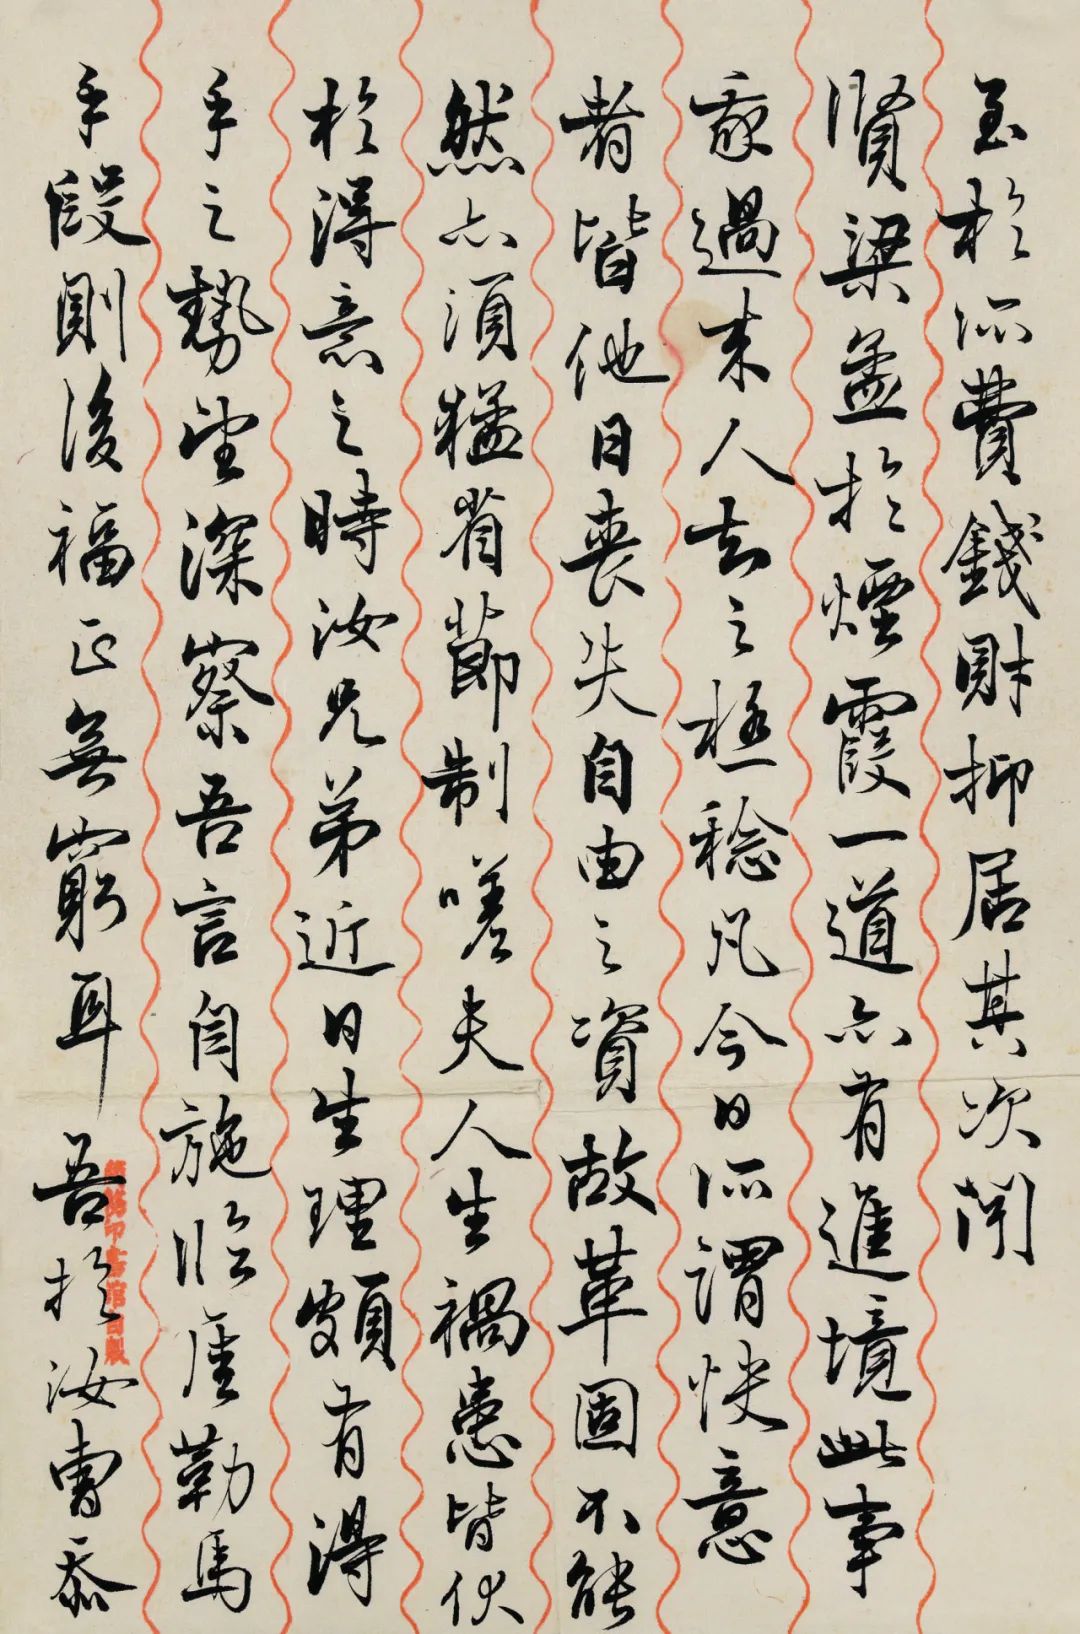 至於所費錢財抑居其次聞
賢梁孟於煙霞一道亦有進境此事
我過來人去之極稔凡今日所謂快意
者皆他日喪失自由之資故革固不能
然亦須猶省節制嗟夫人生禍患皆伏
於得意之時汝兄弟近日生理頗有得
手之勢望深察吾言自施臨崖勒馬
手段則後福正無窮耳吾於汝曹忝
館自製